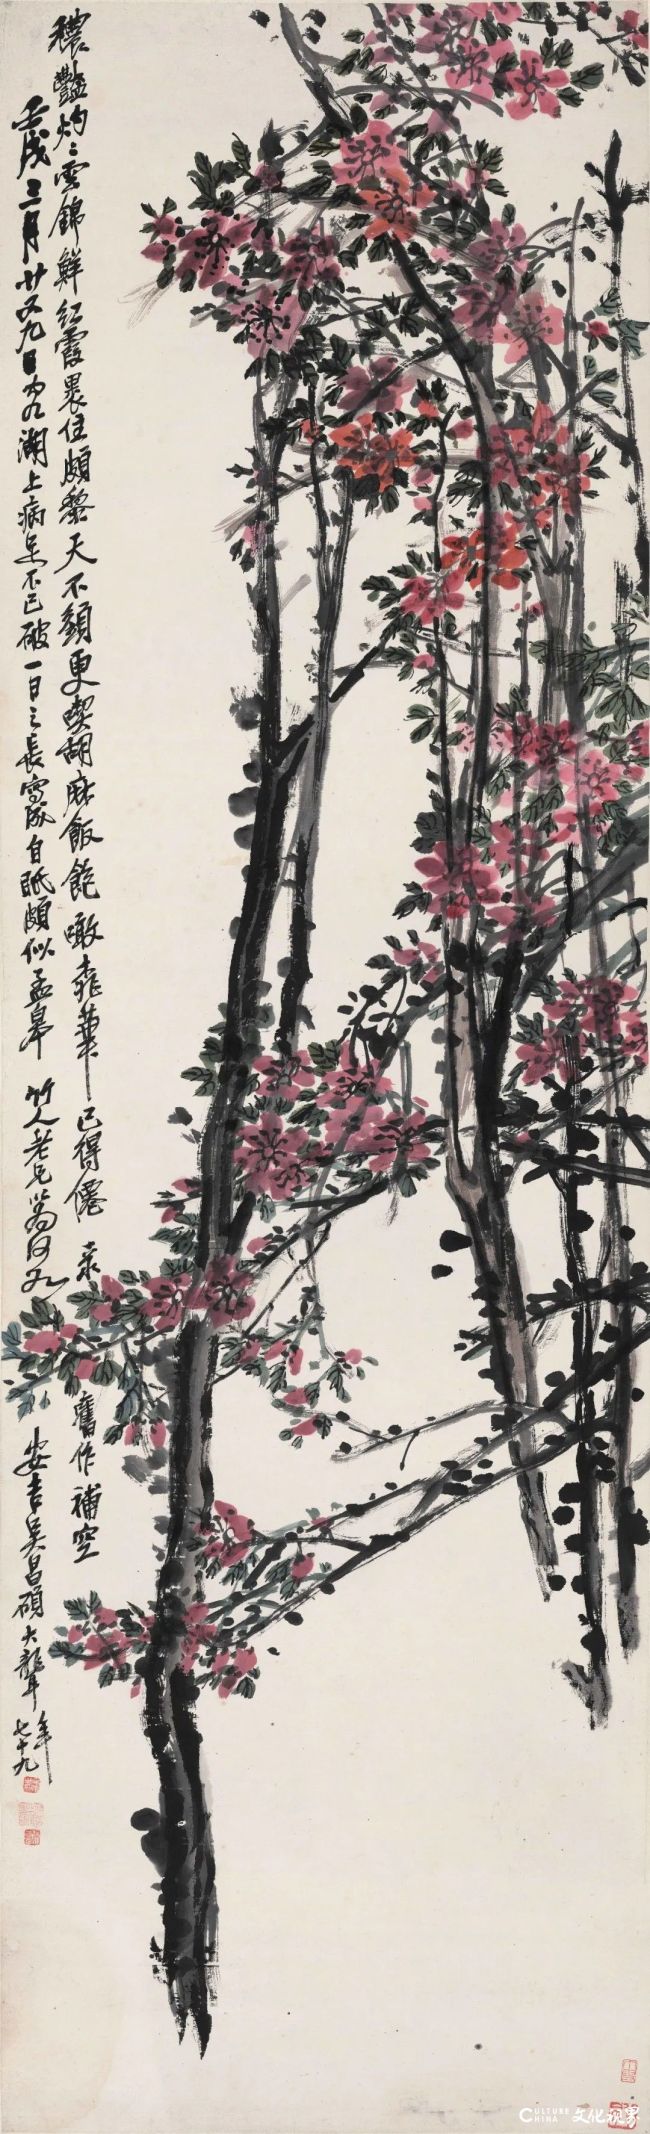 穠豔灼灼雲錦鮮紅霞裹住頗黎天不須更喫胡麻飯飽噉桃華已得僊 彔舊作補空
壬戌三月廿又九日 湖上病足不已破一日之長寫成自眂頗似孟皋 竹人老兄
安吉吳昌碩大聾年七十九
CULTURE CHINA 文化視界